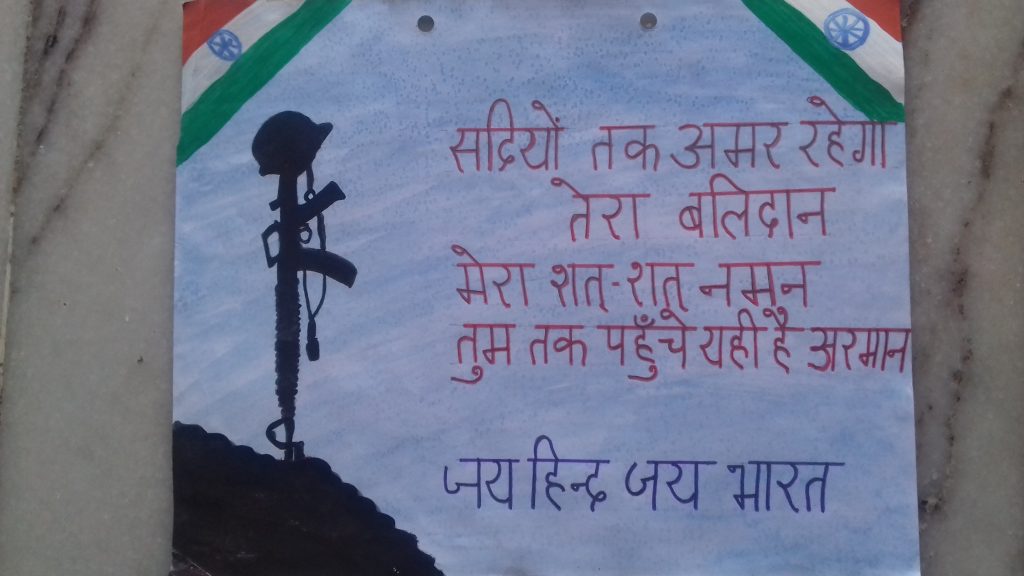 सदियों तक अमर रहेगा
तेरा बलिदान
मेरा शत्-शत् नमन
तुम तक पहुँचे यही है अरमान
जय हिन्द जय भारत